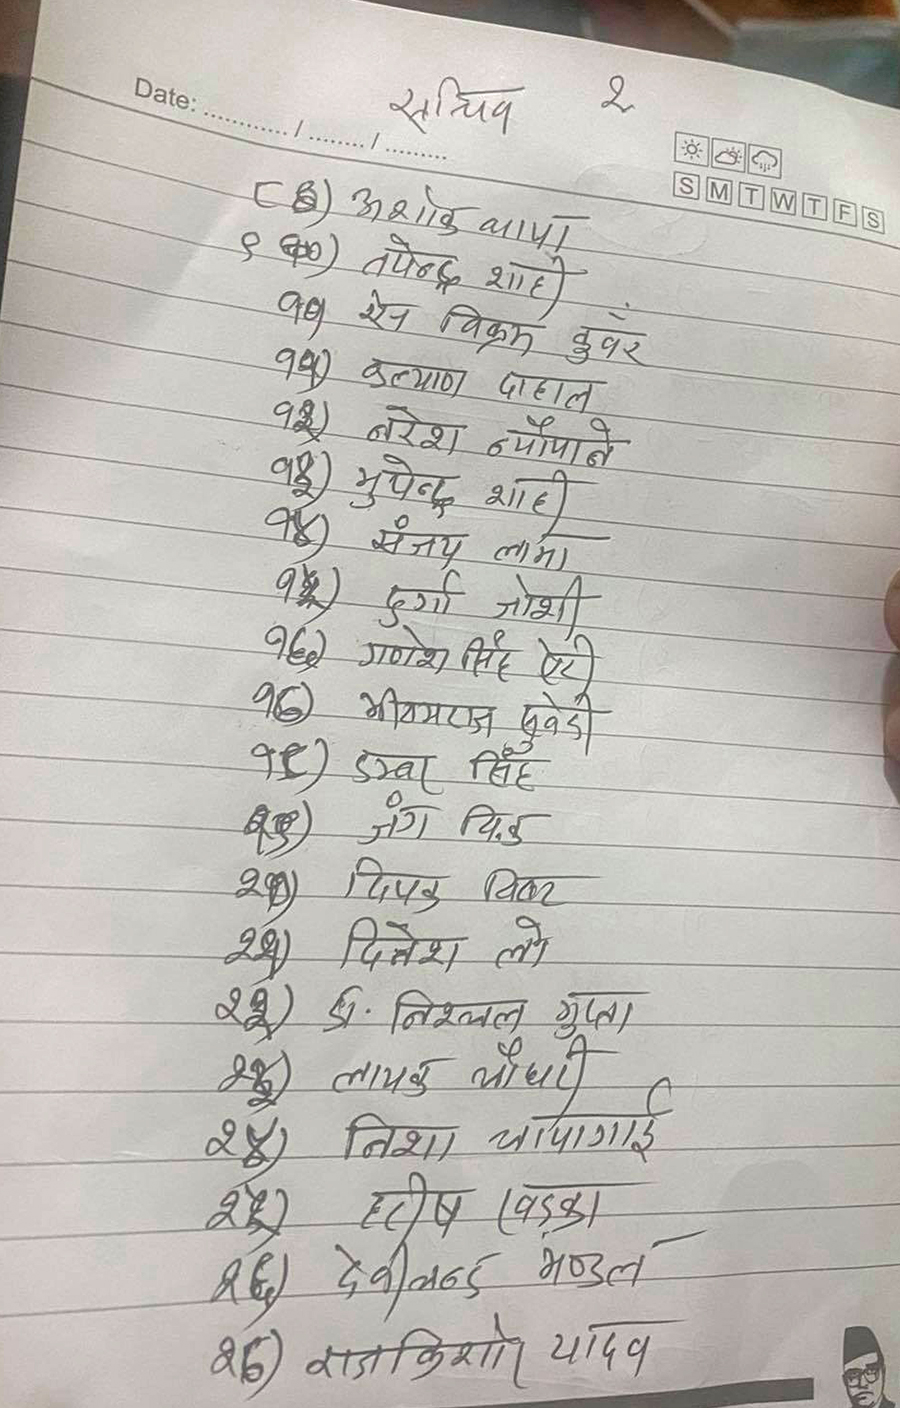 सचिव २
Date: ............ / ........ / .........
S M T W T F S
८) अशोक थापा
९) तपेन्द्र शाही
१०) ऐन विक्रम कुँवर
११) कल्याण दाहाल
१२) नरेश न्यौपाने
१३) भुपेन्द्र शाही
१४) संजय लामा
१५) दुर्गा जोशी
१६) गणेश सिंह ऐरी
१७) भीमराज दुवेदी
१८) डम्बर सिंह
१९) जंग वि.क
२०) दिपक
२१) दिनेश लो
२२) डा. निश्चल गुप्ता
२३) लायक चौधरी
२४) निशा चापागाई
२५) हरीष खड्का
२६) देवीचन्द मण्डल
२७) राजकिशोर यादव